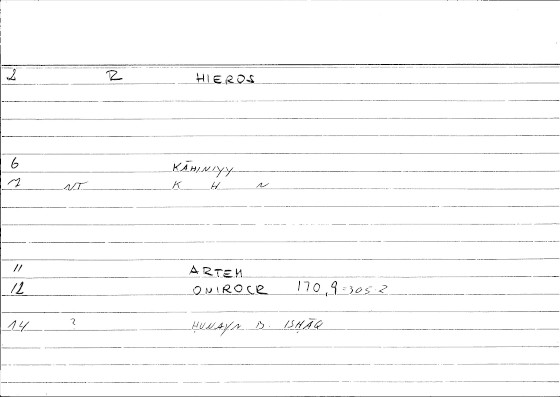 2 R HIEROS
6 KĀHINIYY
7 NT K H N
11 ARTEM
12 ONIROCR 170,9=305-2
14 ? ḤUNAYN B. ISḤĀQ